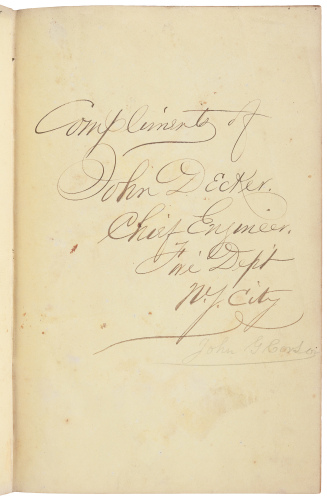 Compliments of
John Decker.
Chief Engineer,
Fire Dep't
N.Y. City
John